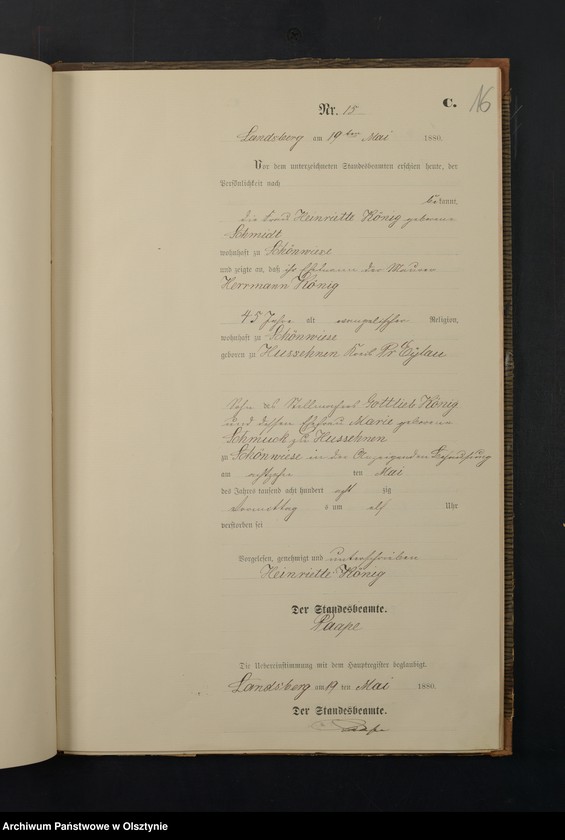 C. 16
Nr. 15
Landsberg am 19ten Mai 1880.
Vor dem unterzeichneten Standesbeamten erschien heute, der
Persönlichkeit nach
bekannt,
die Frau Heinriette König geborene
Schmidt
wohnhaft zu Schönwiese
und zeigte an, daß ihr Ehemann der Maurer
Herrmann König
45 Jahre alt evangelischer Religion,
wohnhaft zu Schönwiese
geboren zu Hussehnen Kreis Pr Eylau
Sohn des Stellmachers Gottlieb König
und dessen Ehefrau Marie geborene
Schmuck zu Hussehnen
zu Schönwiese in der Behausung
am achtzehn ten Mai
des Jahres tausend acht hundert acht zig
Vormittag s um elf Uhr
verstorben sei
Vorgelesen, genehmigt und unterschrieben
Heinriette König
Der Standesbeamte.
Paape
Die Uebereinstimmung mit dem Hauptregister beglaubigt.
Landsberg am 19 ten Mai 1880.
Der Standesbeamte.
Paape
Archiwum Państwowe w Olsztynie